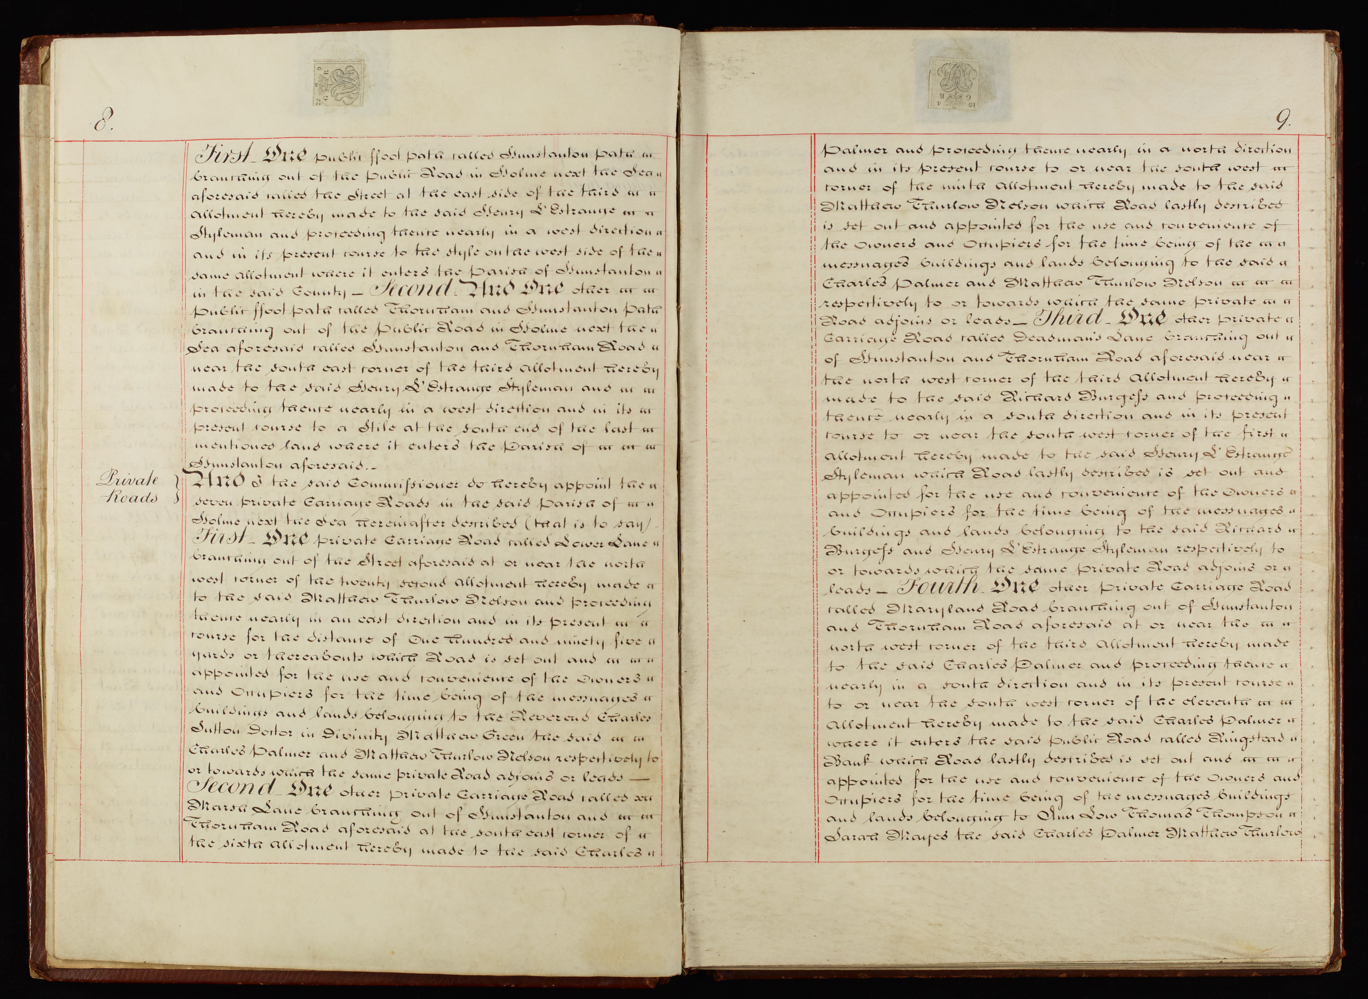 8.
First One public ffoot path called Hunstanton path
branching out of the public Road in Holme next the Sea
aforesaid called the Street at the east side of the third
Allotment hereby made to the said Henry L'Estrange
Styleman and proceeding thence nearly in a west direction
and in its present course to the style on the west side of the
same allotment where it enters the Parish of Hunstanton
in the said County – Second And One other
public ffoot path called Thornham and Hunstanton Path
branching out of the public Road in Holme next the
Sea aforesaid called Hunstanton and Thornham Road
near the south east corner of the third Allotment hereby
made to the said Henry L'Estrange Styleman and
proceeding thence nearly in a west direction and in its
present course to a Stile at the south end of the last
mentioned land where it enters the Parish of
Hunstanton aforesaid.–
Private
Roads
And I the said Commissioner do hereby appoint the
seven private Carriage Roads in the said Parish of
Holme next the Sea hereinafter described (that is to say)
First One private Carriage Road called Lower Lane
branching out of the Street aforesaid at or near the north
west corner of the twenty second Allotment hereby made
to the said Matthew Thurlow Nelson and proceeding
thence nearly in an east direction and in its present
course for the distance of One hundred and ninety five
yards or thereabouts which Road is set out and
appointed for the use and convenience of the Owners
and Occupiers for the time being of the messuages
buildings and lands belonging to the Reverend Charles
Sutton Doctor in Divinity Matthew Green the said
Charles Palmer and Matthew Thurlow Nelson respectively to
or towards which the same private Road adjoins or leads –
Second One other private Carriage Road called
Marsh Lane branching out of Hunstanton and
Thornham Road aforesaid at the south east corner of
the sixth Allotment hereby made to the said Charles
9.
Palmer and proceeding thence nearly in a north direction
and in its present course to or near the south west
corner of the ninth allotment hereby made to the said
Matthew Thurlow Nelson which Road lastly described
is set out and appointed for the use and convenience of
the Owners and Occupiers for the time being of the
messuages buildings and lands belonging to the said
Charles Palmer and Matthew Thurlow Nelson
respectively to or towards which the same private
Road adjoins or leads – Third One other private
Carriage Road called Deadman's Lane branching out
of Hunstanton and Thornham Road aforesaid near
the north west corner of the third Allotment hereby
made to the said Richard Burgess and proceeding
thence nearly in a south direction and in its present
course to or near the south west corner of the first
allotment hereby made to the said Henry L'Estrange
Styleman which Road lastly described is set out and
appointed for the use and convenience of the Owners
and Occupiers for the time being of the messuages
buildings and lands belonging to the said Richard
Burgess and Henry L'Estrange Styleman respectively to
or towards which the same private Road adjoins or
leads – Fourth One other private Carriage Road
called Maryland Road branching out of Hunstanton
and Thornham Road aforesaid at or near the
north west corner of the third Allotment hereby made
to the said Charles Palmer and proceeding thence
nearly in a south direction and in its present course
to or near the south west corner of the eleventh
Allotment hereby made to the said Charles Palmer
where it enters the said public Road called Ringstead
Bank which Road lastly described is set out and
appointed for the use and convenience of the Owners and
Occupiers for the time being of the messuages buildings
and lands belonging to Ann Dow Thomas Thompson
Sarah Mayes the said Charles Palmer Matthew Thurlow